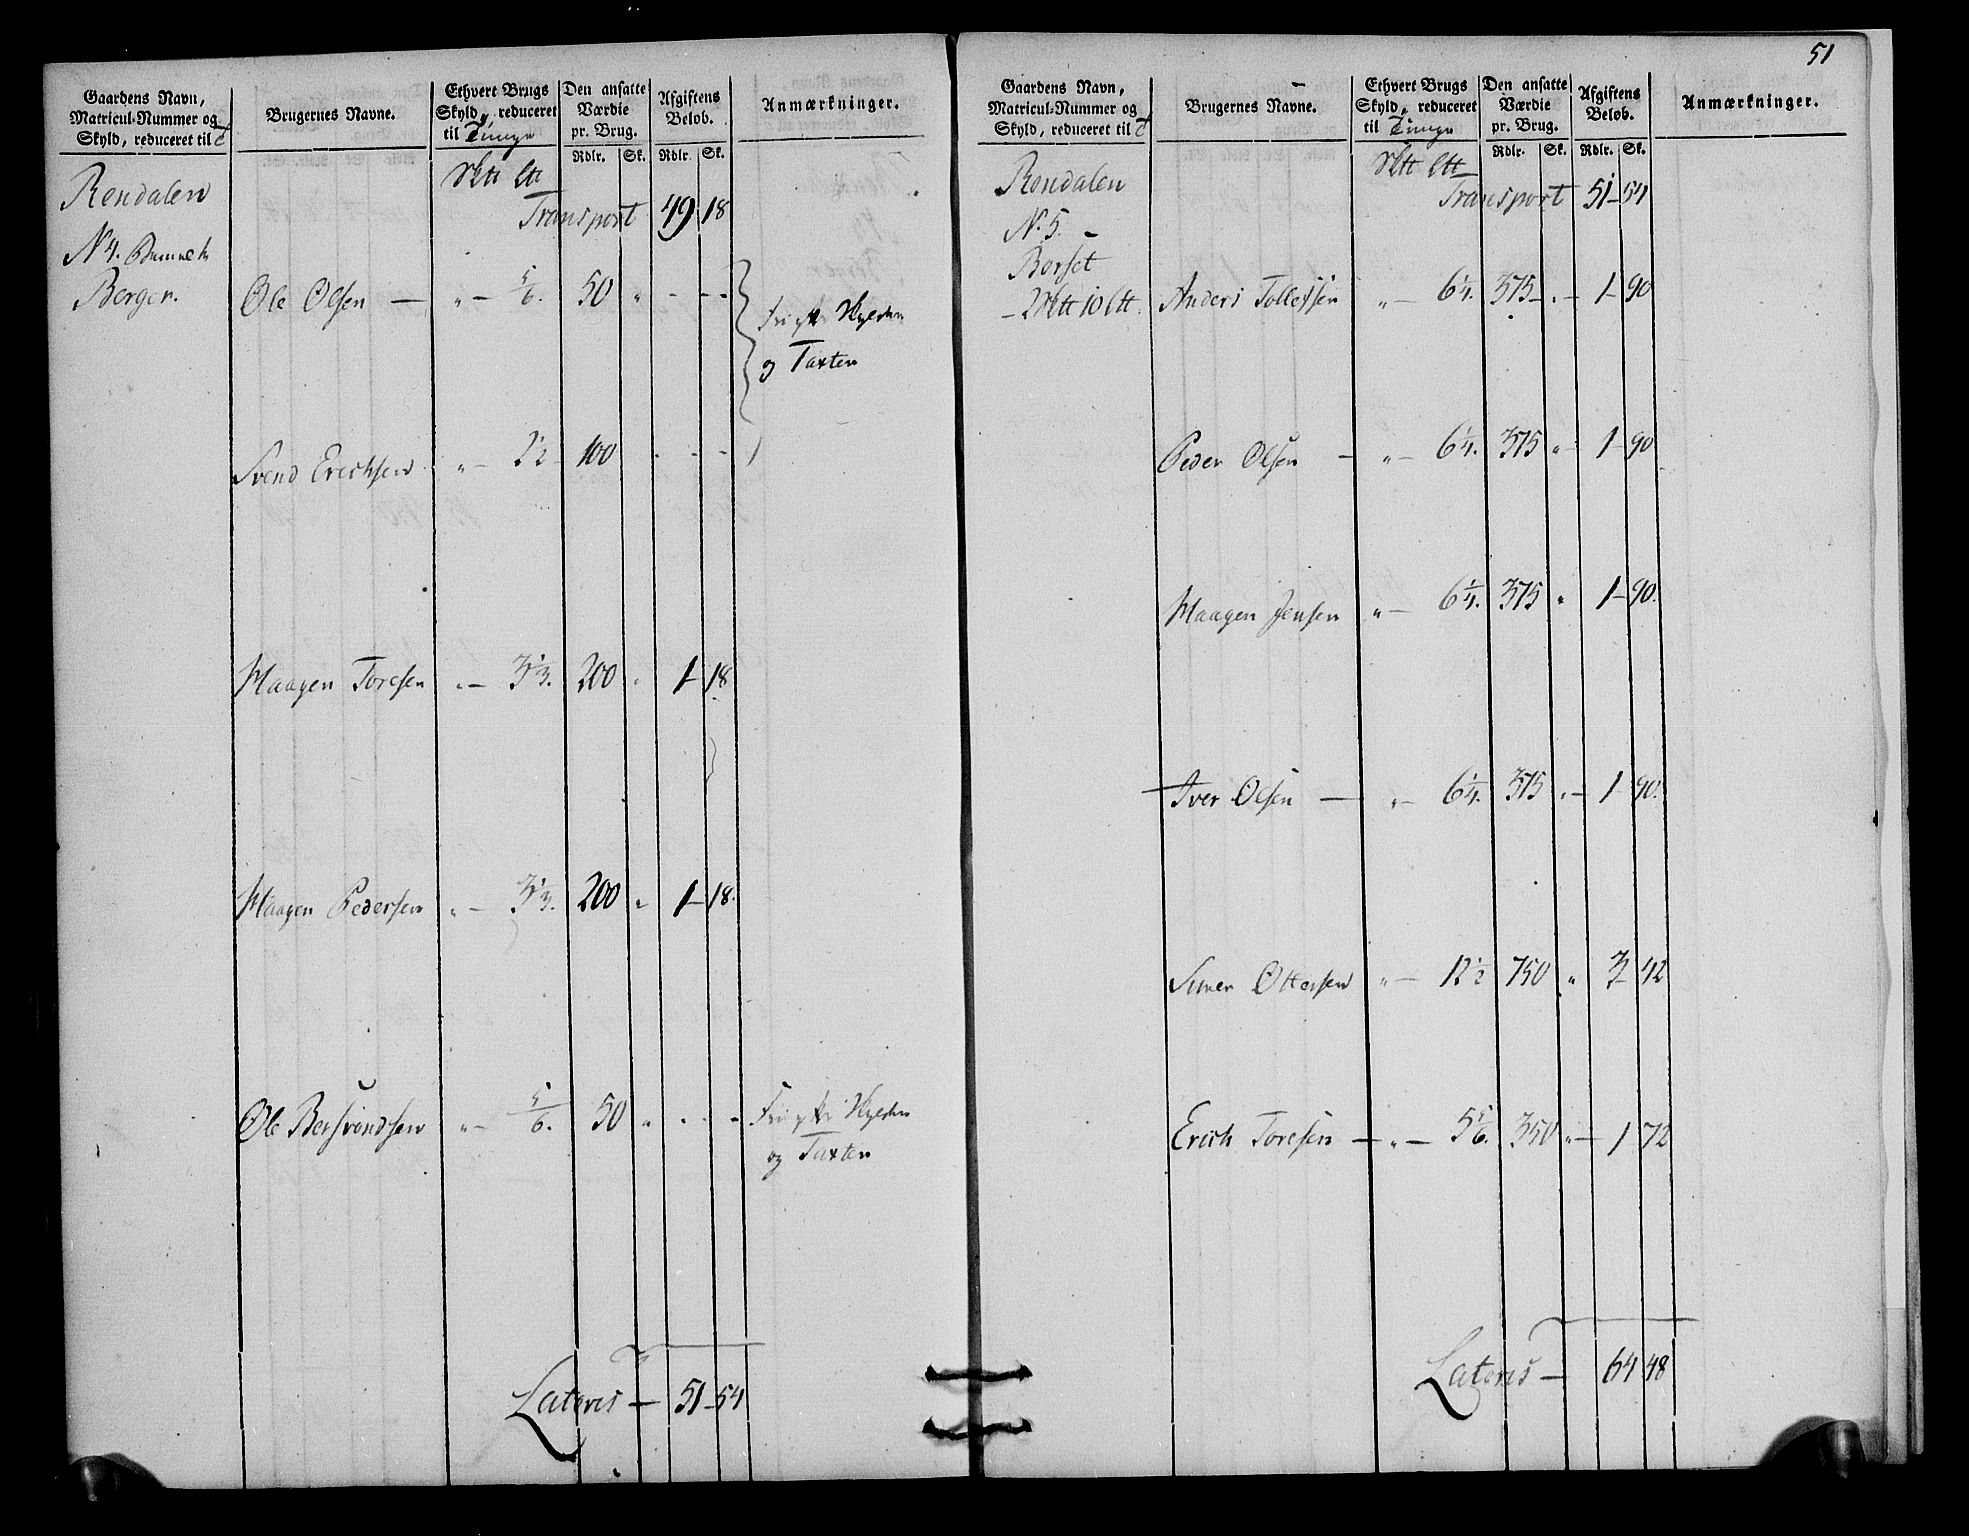 Gaardens Navn,
Matricul-Nummer og
Skyld, reduceret til T
Brugernes Navne.
Ethvert Brugs
Skyld, reduceret
til Tunge
Den ansatte
Værdie
pr. Brug.
Rdlr. Sk.
Afgiftens
Beløb.
Rdlr. Sk.
Anmærkninger.
Rendalen
Transport 49 18
N 4.
Bergen.
Ole Olsen — " — 5/6. 50 " - - -
og Taxten
Svend Erichsen " — 1½ 100 - - -
Haagen Toresen " — 3⅓. 200 " 1 — 18
Haagen Pedersen " — 3⅓. 200 " 1 — 18.
Ole Bersvendsen " — 5/6. 50 " - - -
og Taxten
Lateris — 51 — 54
51
Gaardens Navn,
Matricul-Nummer og
Skyld, reduceret til T
Brugernes Navne.
Ethvert Brugs
Skyld, reduceret
til Tunge
Den ansatte
Værdie
pr. Brug.
Rdlr. Sk.
Afgiftens
Beløb.
Rdlr. Sk.
Anmærkninger.
Rendalen
Transport 51 — 54
N. 5.
Berset
Anders Tollefsen " — 6¼. 375 — " — 1 — 90
Peder Olsen — " — 6¼. 375 " 1 — 90
Haagen Jensen " — 6¼. 375 " 1 — 90.
Iver Olsen — " — 6¼. 375 " — 1 — 90.
Simen Ottersen " — 12½ 750 " 3 — 42
Erich Toresen — " — 5 5/6. 350 " — 1 72
Lateris — 64 48